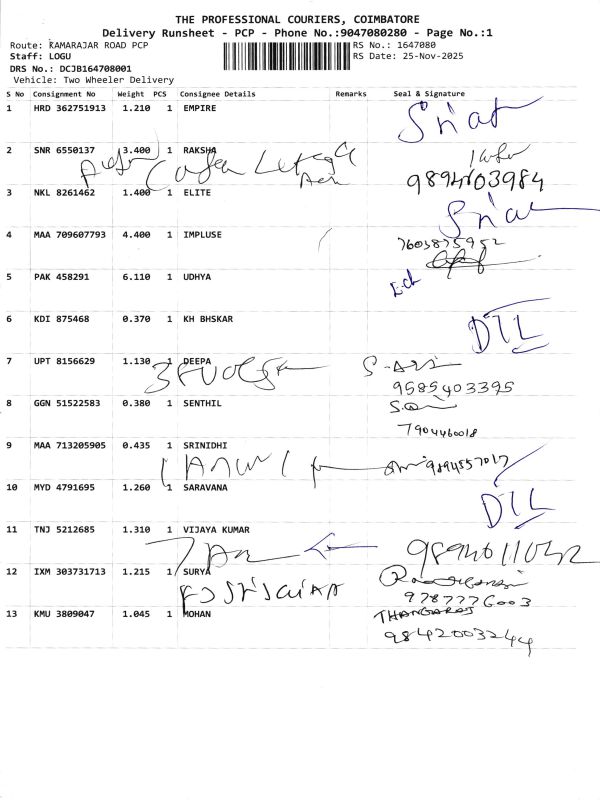 THE PROFESSIONAL COURIERS, COIMBATORE
Delivery Runsheet - PCP - Phone No.:9047080280 - Page No.:1
Route: KAMARAJAR ROAD PCP RS No.: 1647080
Staff: LOGU RS Date: 25-Nov-2025
DRS No.: DCJB164708001
Vehicle: Two Wheeler Delivery
S No Consignment No Weight PCS Consignee Details Remarks Seal & Signature
1 HRD 362751913 1.210 1 EMPIRE
2 SNR 6550137 3.400 1 RAKSHA
9894603984
3 NKL 8261462 1.400 1 ELITE
4 MAA 709607793 4.400 1 IMPLUSE
7603875952
5 PAK 458291 6.110 1 UDHYA
6 KDI 875468 0.370 1 KH BHSKAR
DTL
7 UPT 8156629 1.130 1 DEEPA
9585403395
8 GGN 51522583 0.380 1 SENTHIL
7904460018
9 MAA 713205905 0.435 1 SRINIDHI
9894557017
10 MYD 4791695 1.260 1 SARAVANA
DTL
11 TNJ 5212685 1.310 1 VIJAYA KUMAR
12 IXM 303731713 1.215 1 SURYA
9787776003
13 KMU 3809047 1.045 1 MOHAN
THANGARAJ
9842003244